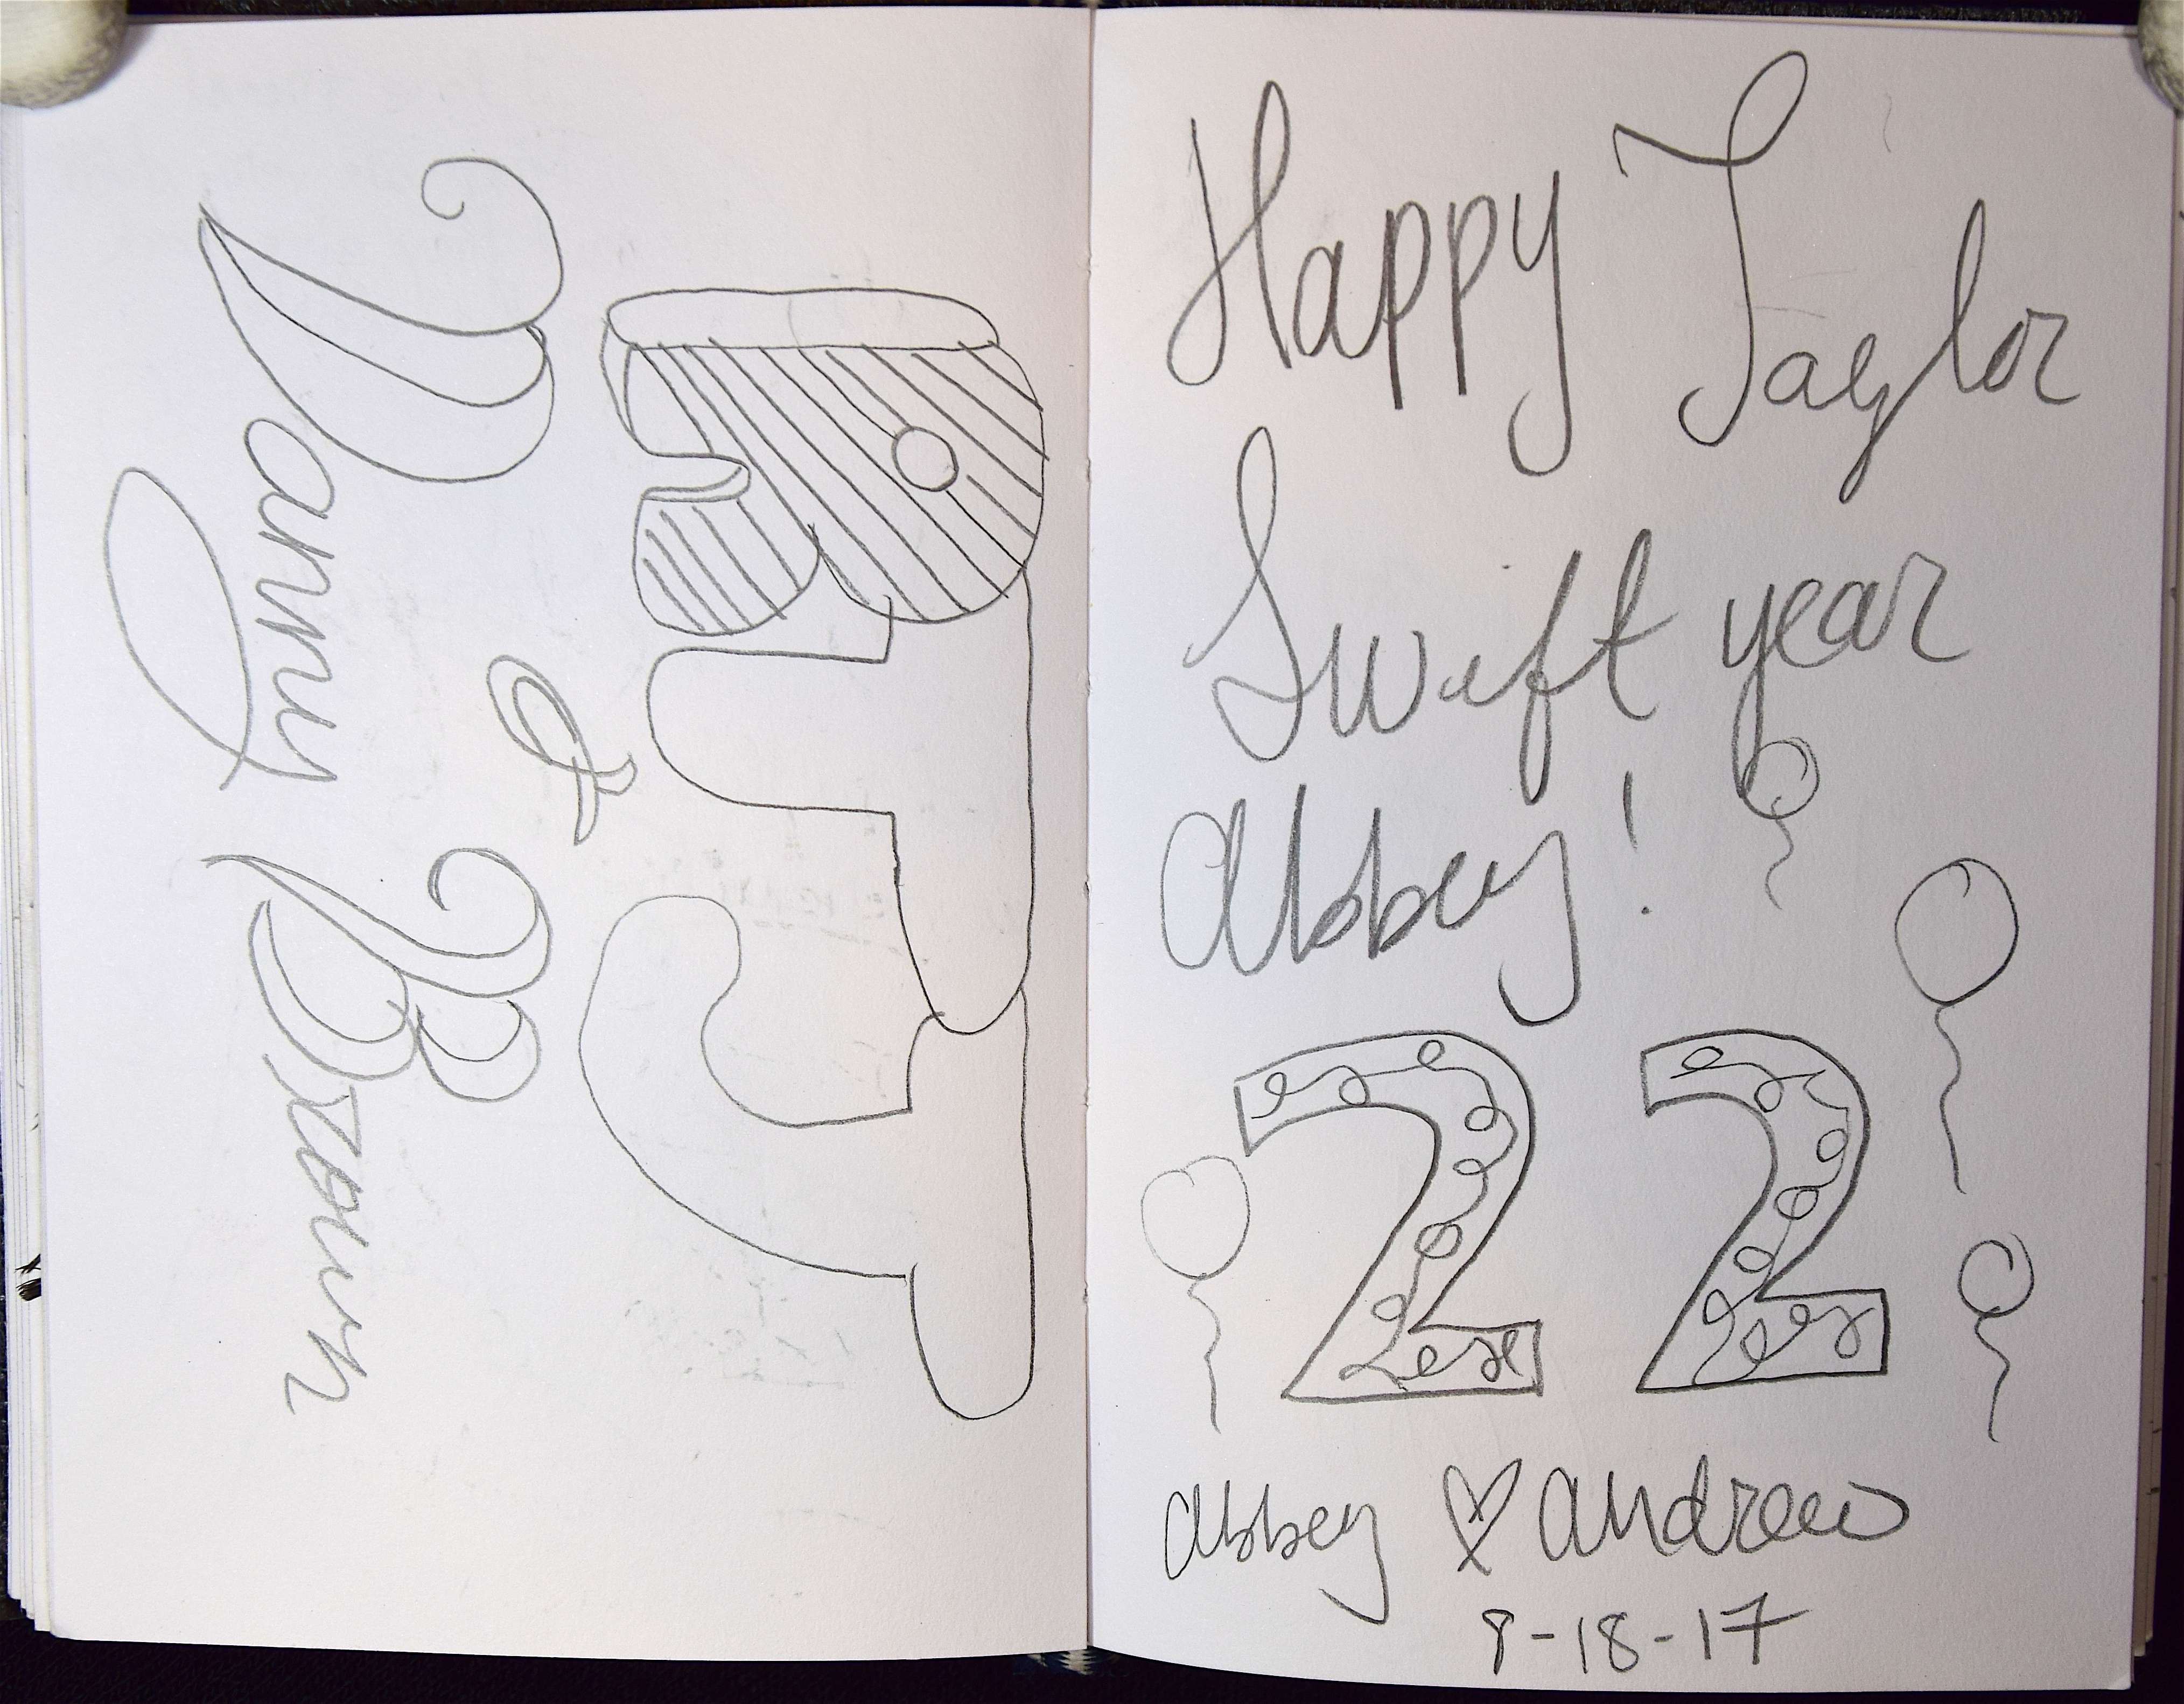 Danny & Brown
Happy Taylor
Swift year
Abbey!
22
Abbey ♡ Andrew
8-18-17